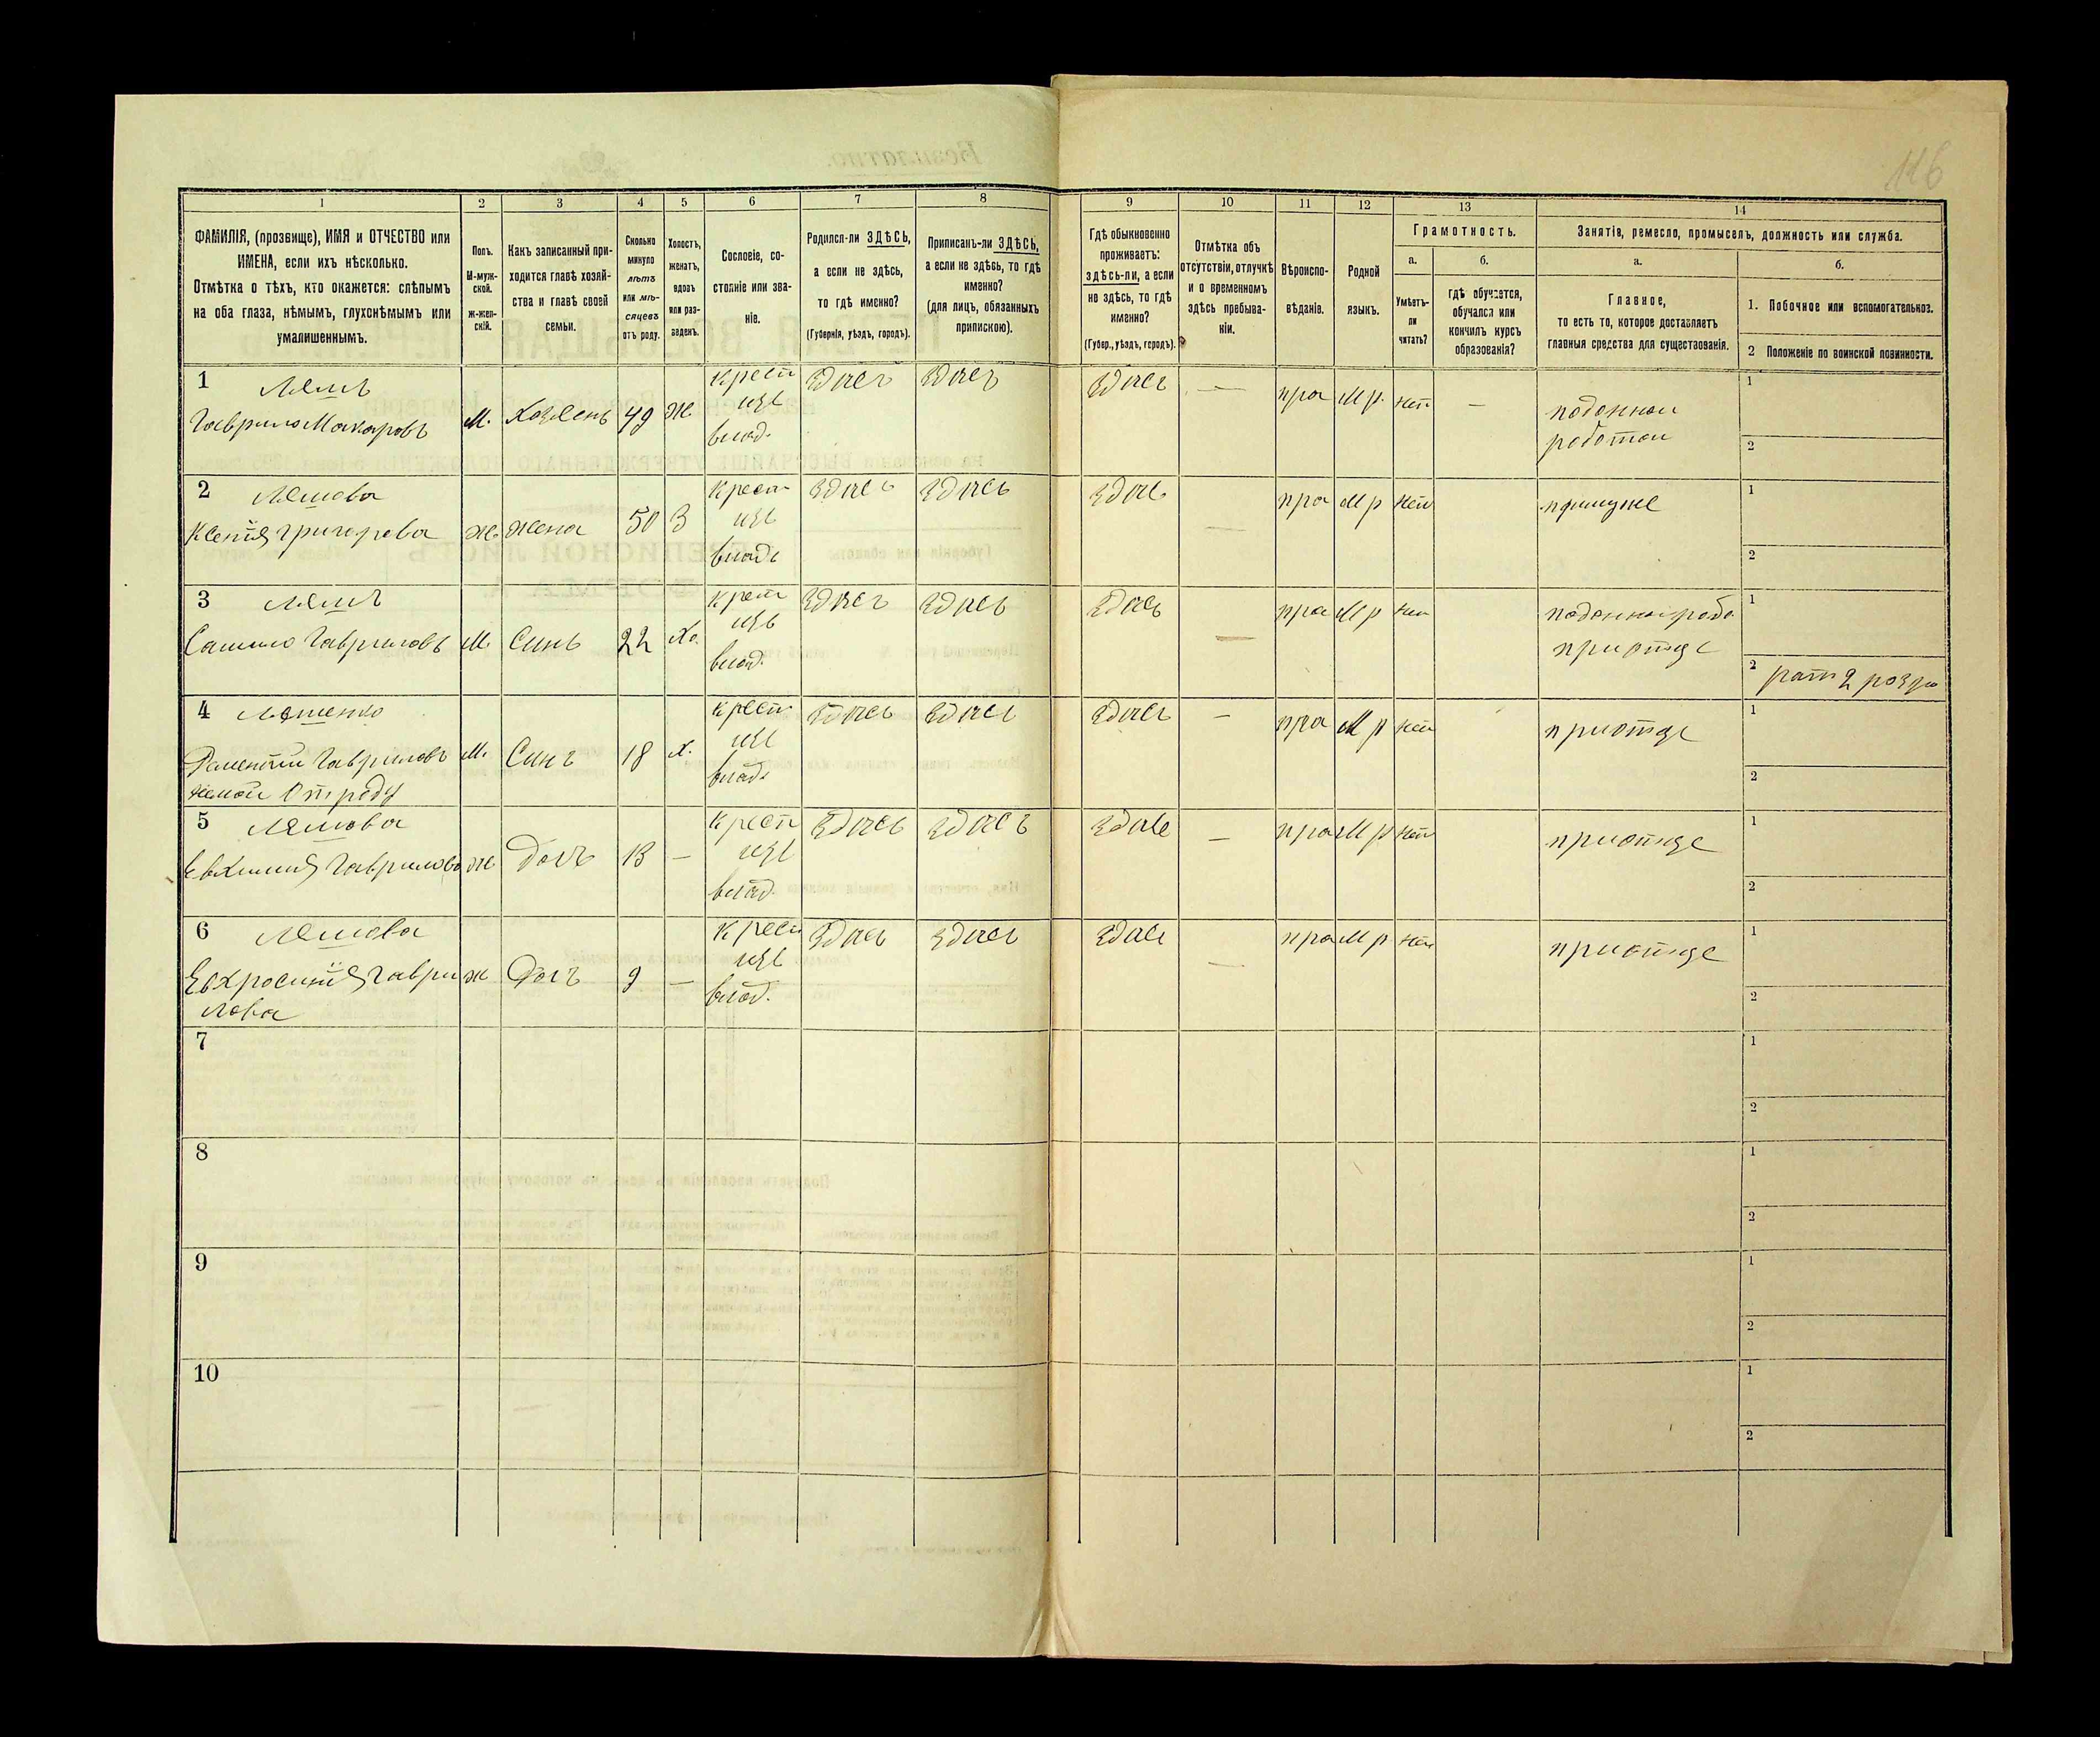 116
1 2 3 4 5 6 7 8 9 10 11 12 13 14
ФАМИЛІЯ, (прозвище), ИМЯ и ОТЧЕСТВО или
ИМЕНА, если ихъ нѣсколько.
Отмѣтка о тѣхъ, кто окажется: слѣпымъ
на оба глаза, нѣмымъ, глухонѣмымъ или
умалишеннымъ.
Полъ.
М-муж-
ской.
Ж-жен-
скій.
Какъ записанный при-
ходится главѣ хозяй-
ства и главѣ своей
семьи.
Сколько
минуло
лѣтъ
или мѣ-
сяцевъ
отъ роду.
Холостъ,
женатъ,
вдовъ
или раз-
веденъ.
Сословіе, со-
стояніе или зва-
ніе.
Родился-ли ЗДѢСЬ,
а если не здѣсь,
то гдѣ именно?
(Губернія, уѣздъ, городъ).
Приписанъ-ли ЗДѢСЬ,
а если не здѣсь, то гдѣ
именно?
(для лицъ, обязанныхъ
припискою).
Гдѣ обыкновенно
проживаетъ:
здѣсь-ли, а если
не здѣсь, то гдѣ
именно?
(Губер., уѣздъ, городъ).
Отмѣтка объ
отсутствіи, отлучкѣ
и о временномъ
здѣсь пребыва-
ніи.
Вѣроиспо-
вѣданіе.
Родной
языкъ.
Грамотность.
а.
Умѣетъ-
ли
читать?
б.
гдѣ обучается,
обучался или
кончилъ курсъ
образованія?
Занятія, ремесло, промыселъ, должность или служба.
а.
Главное,
то есть то, которое доставляетъ
главныя средства для существованія.
б.
1. Побочное или вспомогательное.
2 Положеніе по воинской повинности.
1 Лешъ
Гаврило Макаровъ
М. Хозяенъ 49 Ж.
крест
изъ
влад.
здись здись здись — пра М р. нет —
поденной
работой
1
2
2 Лешова
Ксенія Григорева
Ж. жена 50 З
крест
изъ
влад
здись здись здись — пра М р нет
примуже
1
2
3 Лешъ
Самило Гавриловъ
М. Синъ 22 Хо.
крест
изъ
влад.
здись здись здись — пра М р нет
поденной рабо
приотце
1
2 рат 2 розря
4 Лешенко
Гавриловъ
немой От роду
М. Синъ 18 Х.
крест
изъ
влад.
здись здись здись — пра М р нет
приотце
1
2
5 Лешова
Евхимия Гаврилова
Ж Дочъ 13 —
крест
изъ
влад.
здись здись здись — пра М р нет
приотце
1
2
6 Лешова
Евхросинія Гаври
лова
Ж Дочъ 9 —
крест
изъ
влад.
здись здись здись — пра М р нет
приотце
1
2
7
1
2
8
1
2
9
1
2
10
1
2